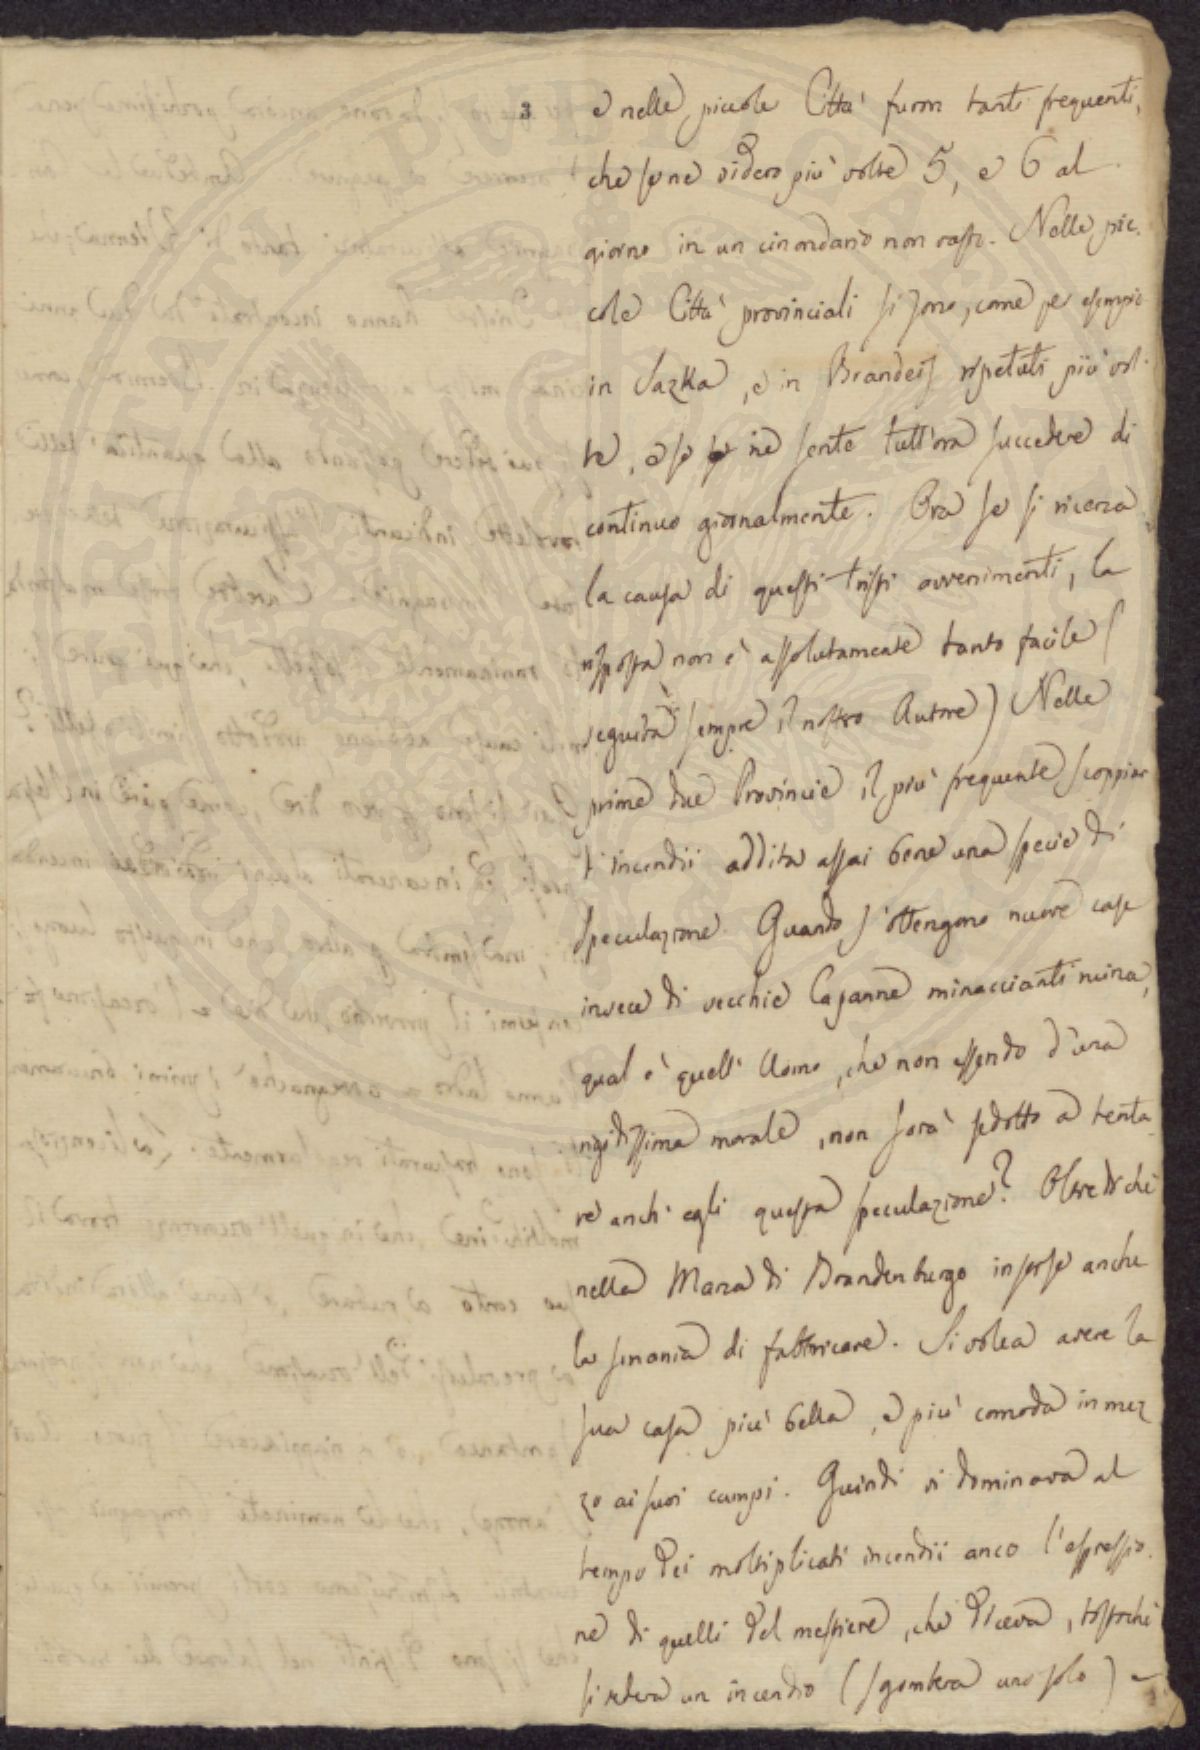 3
e nelle piccole Città furon tanti frequenti,
che se ne videro più volte 5, e 6 al
giorno in un circondario non vasto. Nelle pic-
cole Città provinciali si sono, come per esempio
in Sazka, e in Brandeis ripetuti più vol-
te, e se ne sente tutt'ora succedere di
continuo giornalmente. Ora se si ricerca
la causa di questi tristi avvenimenti, la
risposta non è assolutamente tanto facile (
seguita sempre il nostro Autore) Nelle
prime due Provincie il più frequente scoppiar
d'incendii addita assai bene una specie di
speculazione. Quando s'ottengono nuove case
invece di vecchie Capanne minaccianti ruina,
qual è quell' Uomo, che non essendo d'una
rigidissima morale, non sarà sedotto a tenta-
re anch' egli questa speculazione? Oltre di che
nella Marca di Brandenburgo insorse anche
la smania di fabbricare. Si volea avere la
sua casa più bella, e più comoda in mez
zo ai suoi campi. Quindi vi dominava al
tempo dei moltiplicati incendii anco l'espressio-
ne di quelli del mestiere, che diceva, tostoché
si vedeva un incendio (sgombera uno solo) –